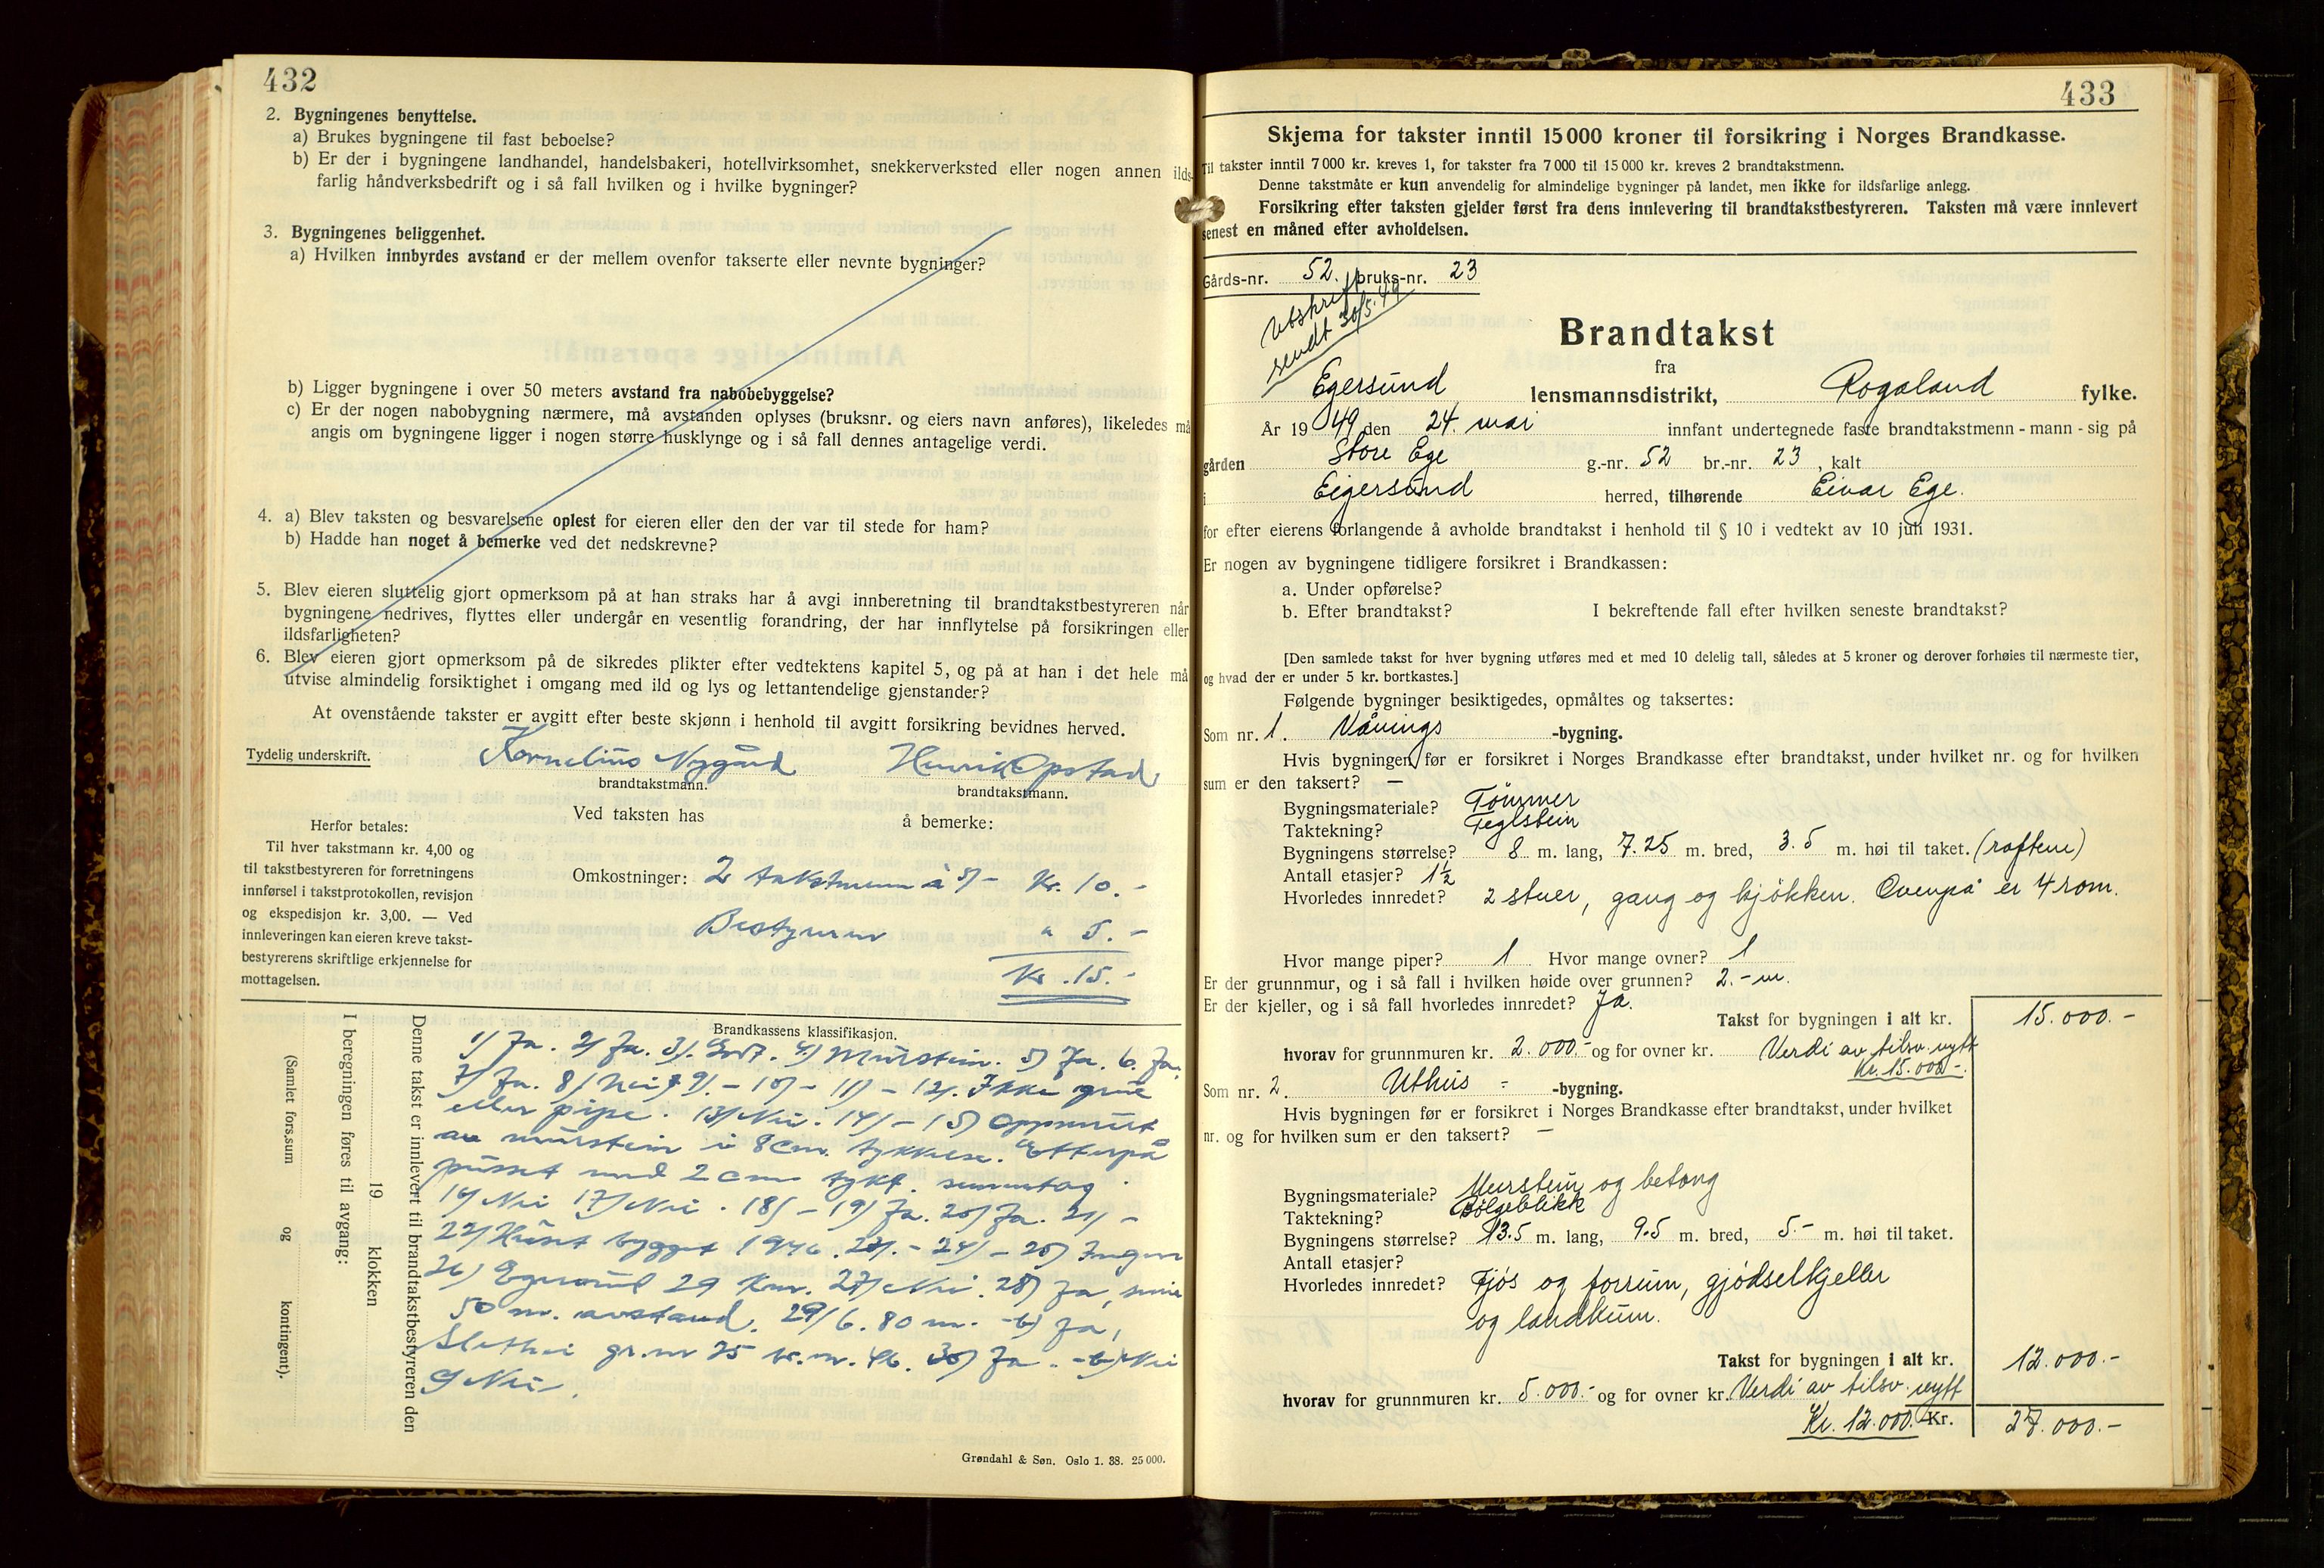 432
2. Bygningenes benyttelse.
a) Brukes bygningene til fast beboelse?
b) Er der i bygningene landhandel, handelsbakeri, hotellvirksomhet, snekkerverksted eller nogen annen ilds-
farlig håndverksbedrift og i så fall hvilken og i hvilke bygninger?
3. Bygningenes beliggenhet.
a) Hvilken innbyrdes avstand er der mellem ovenfor takserte eller nevnte bygninger?
b) Ligger bygningene i over 50 meters avstand fra nabobebyggelse?
c) Er der nogen nabobygning nærmere, må avstanden oplyses (bruksnr. og eiers navn anføres), likeledes må
angis om bygningene ligger i nogen større husklynge og i så fall dennes antagelige verdi.
4. a) Blev taksten og besvarelsene oplest for eieren eller den der var til stede for ham?
b) Hadde han noget å bemerke ved det nedskrevne?
5. Blev eieren sluttelig gjort opmerksom på at han straks har å avgi innberetning til brandtakstbestyreren når
bygningene nedrives, flyttes eller undergår en vesentlig forandring, der har innflytelse på forsikringen eller
ildsfarligheten?
6. Blev eieren gjort opmerksom på de sikredes plikter efter vedtektens kapitel 5, og på at han i det hele må
utvise almindelig forsiktighet i omgang med ild og lys og lettantendelige gjenstander?
At ovenstående takster er avgitt efter beste skjønn i henhold til avgitt forsikring bevidnes herved.
Tydelig underskrift. Kornelius Nygård Henrik Opstad
brandtakstmann. brandtakstmann.
Ved taksten has å bemerke:
Herfor betales:
Til hver takstmann kr. 4,00 og
til takstbestyreren for forretningens
innførsel i takstprotokollen, revisjon
og ekspedisjon kr. 3,00. — Ved
innleveringen kan eieren kreve takst-
bestyrerens skriftlige erkjennelse for
mottagelsen.
Omkostninger: 2 takstmenn à 5/- Kr. 10.-
Bestyreren " 5.-
Kr. 15.-
Brandkassens klassifikasjon.
1/ Ja. 2/ Ja. 3/. Godt. 4/ Murstein. 5/ Ja. 6. Ja.
7/ Ja. 8/ Nei 9/. - 10/ - 11/ - 12/. Ikke grue
eller pipe. 13/ Nei. 14/ - 15/ Oppmurt
av murstein i 8 cm. tykkelse. Etterpå
pusset med 2 cm tykt.
16/ Nei 17/ Nei. 18/ - 19/ Ja. 20/ Ja. 21/ -
22/ Huset bygget 1946. 23/. - 24/ - 25/ Ingen
26/ Egersund 29 Km. 27/ Nei. 28/ Ja,
50 m. avstand. 29/ 6. 80 m. - b) Ja,
Slethei gr.nr 25 br.nr. 46. 30/ Ja. - b) Nei
Nei.
Denne takst er innlevert til brandtakstbestyreren den
19 klokken
I beregningen føres til avgang:
(Samlet fors.sum og kontingent).
Grøndahl & Søn. Oslo 1. 38. 25 000.
433
Skjema for takster inntil 15 000 kroner til forsikring i Norges Brandkasse.
Til takster inntil 7 000 kr. kreves 1, for takster fra 7 000 til 15 000 kr. kreves 2 brandtakstmenn.
Denne takstmåte er kun anvendelig for almindelige bygninger på landet, men ikke for ildsfarlige anlegg.
Forsikring efter taksten gjelder først fra dens innlevering til brandtakstbestyreren. Taksten må være innlevert
senest en måned efter avholdelsen.
Gårds-nr. 52. bruks-nr. 23
Utskrift
sendt 30/5.49
Brandtakst
fra
Egersund lensmannsdistrikt, Rogaland fylke.
År 1949 den 24. mai innfant undertegnede faste brandtakstmenn - mann - sig på
gården Store Ege g.-nr. 52 br.-nr. 23, kalt
i Eigersund herred, tilhørende Einar Ege.
for efter eierens forlangende å avholde brandtakst i henhold til § 10 i vedtekt av 10 juli 1931.
Er nogen av bygningene tidligere forsikret i Brandkassen:
a. Under opførelse?
b. Efter brandtakst? I bekreftende fall efter hvilken seneste brandtakst?
[Den samlede takst for hver bygning utføres med et med 10 delelig tall, således at 5 kroner og derover forhøies til nærmeste tier,
og hvad der er under 5 kr. bortkastes.]
Følgende bygninger besiktigedes, opmåltes og taksertes:
Som nr. 1. Vånings -bygning.
Hvis bygningen før er forsikret i Norges Brandkasse efter brandtakst, under hvilket nr. og for hvilken
sum er den taksert? —
Bygningsmateriale? Tömmer
Taktekning? Teglstein
Bygningens størrelse? 8 m. lang, 7.25 m. bred, 3.5 m. høi til taket. (raftene)
Antall etasjer? 1½
Hvorledes innredet? 2 stuer, gang og kjökken. Ovenpå er 4 rom.
Hvor mange piper? 1 Hvor mange ovner? 1
Er der grunnmur, og i så fall i hvilken høide over grunnen? 2.- m.
Er der kjeller, og i så fall hvorledes innredet? Ja.
Takst for bygningen i alt kr. 15.000.-
hvorav for grunnmuren kr. 2.000.- og for ovner kr. Verdi av tilsv. nytt
Kr. 15.000-.
Som nr. 2. Uthus -bygning.
Hvis bygningen før er forsikret i Norges Brandkasse efter brandtakst, under hvilket
nr. og for hvilken sum er den taksert? —
Bygningsmateriale? Murstein og betong
Taktekning? Bölgeblikk
Bygningens størrelse? 13.5 m. lang, 9.5 m. bred, 5.- m. høi til taket.
Antall etasjer?
Hvorledes innredet? Fjös og forrum, gjödselkjeller
og landkum.
Takst for bygningen i alt kr. 12.000.-
hvorav for grunnmuren kr. 5.000.- og for ovner kr. Verdi av tilsv. nytt
Kr. 12.000.- Kr. 27.000.-